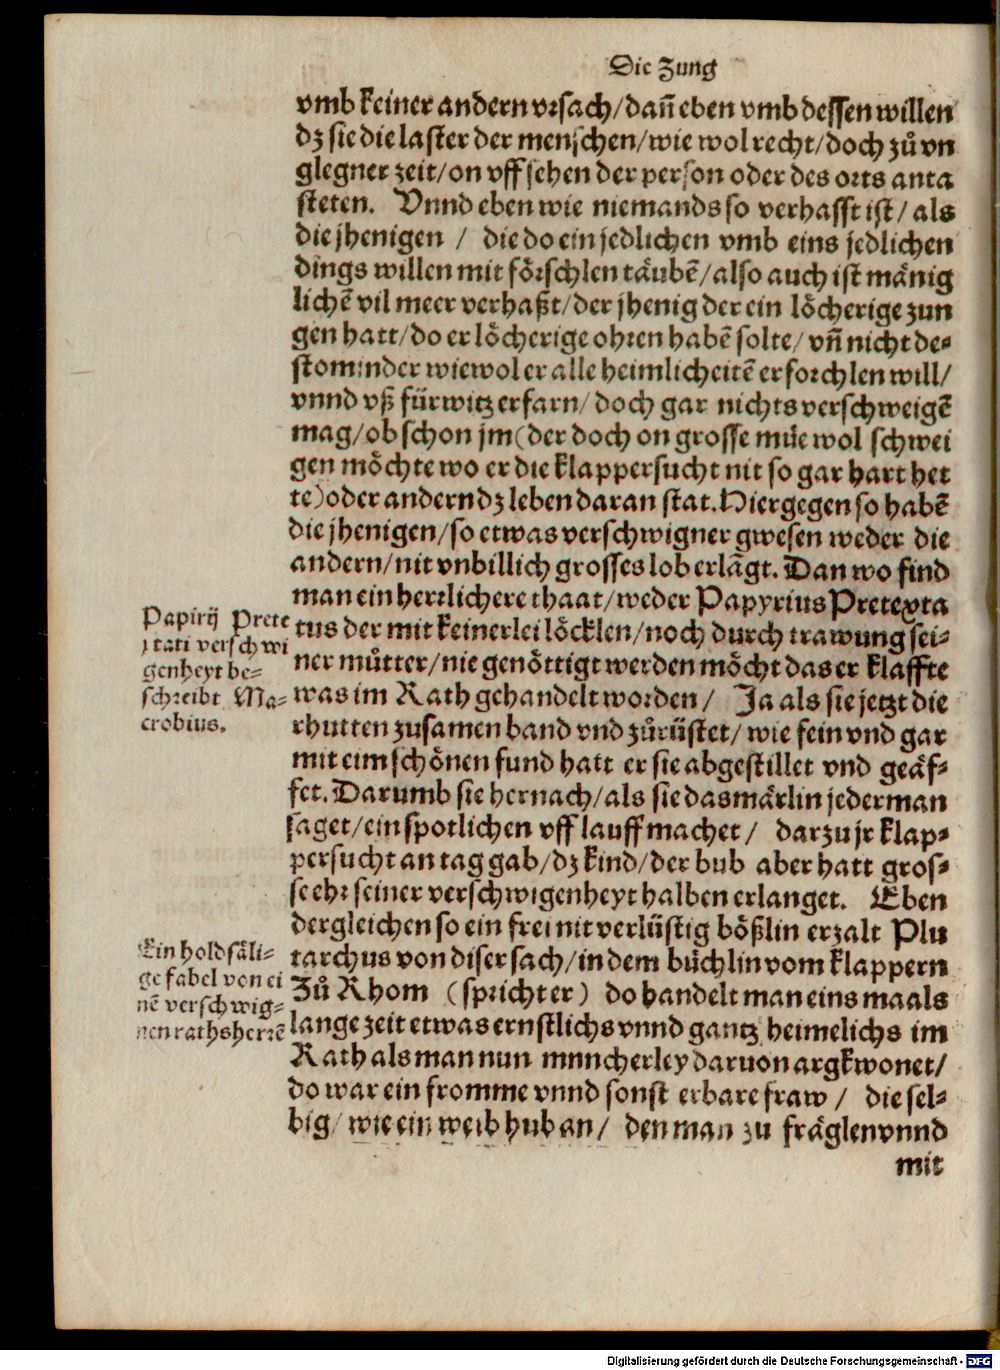 Die Zung
vmb keiner andern vrsach/dañ eben vmb dessen willen
dz sie die laster der menschen/wie wol recht/doch zů vn
glegner zeit/on vff sehen der person oder des orts anta
steten. Vnnd eben wie niemands so verhasst ist/ als
die jhenigen / die do ein jedlichen vmb eins jedlichen
dings willen mit förschlen täubẽ/also auch ist mänig
lichẽ vil meer verhaßt/der jhenig der ein löcherige zun
gen hatt/do er löcherige ohren habẽ solte/ vñ nicht de-
stominder wiewol er alle heimlicheitẽ erforchlen will/
vnnd vß fürwitz erfarn/ doch gar nichts verschweigẽ
mag/ob schon jm(der doch on grosse müe wol schwei
gen möchte wo er die klappersucht nit so gar hart het
te)oder andern dz leben daran stat. Hiergegen so habẽ
die jhenigen/so etwas verschwigner gwesen weder die
andern/nit vnbillich grosses lob erlãgt. Dan wo find
man ein herrlichere thaat/weder Papyrius Pretexta
tus der mit keinerlei löcklen/noch durch trawung sei-
ner můtter/nie genöttigt werden möcht das er klaffte
was im Rath gehandelt worden/ Ja als sie jetzt die
rhutten zusamen band vnd zůrüstet/ wie fein vnd gar
mit eim schönen fund hatt er sie abgestillet vnd geäf-
fet. Darumb sie hernach/als sie das märlin jederman
saget/ein spotlichen vff lauff machet/ darzu jr klap-
persucht an tag gab/dz kind/der bub aber hatt gros-
se ehr seiner verschwigenheyt halben erlanget. Eben
dergleichen so ein frei nit verlüstig bößlin erzalt Plu
tarchus von diser sach/in dem büchlin vom klappern
Zů Rhom (spricht er) do handelt man eins maals
lange zeit etwas ernstlichs vnnd gantz heimelichs im
Rath als man nun mnncherley daruon argkwonet/
do war ein fromme vnnd sonst erbare fraw / die sel-
big/ wie ein weib hub an/ den man zu fräglen vnnd
mit
Papirij Prete
xtati verschwi
genheyt be-
schreibt Ma-
crobius.
Ein holdsäli-
ge fabel von ei
nẽ verschwig-
nen rathsherrẽ
Digitalisierung gefördert durch die Deutsche Forschungsgemeinschaft - DFG